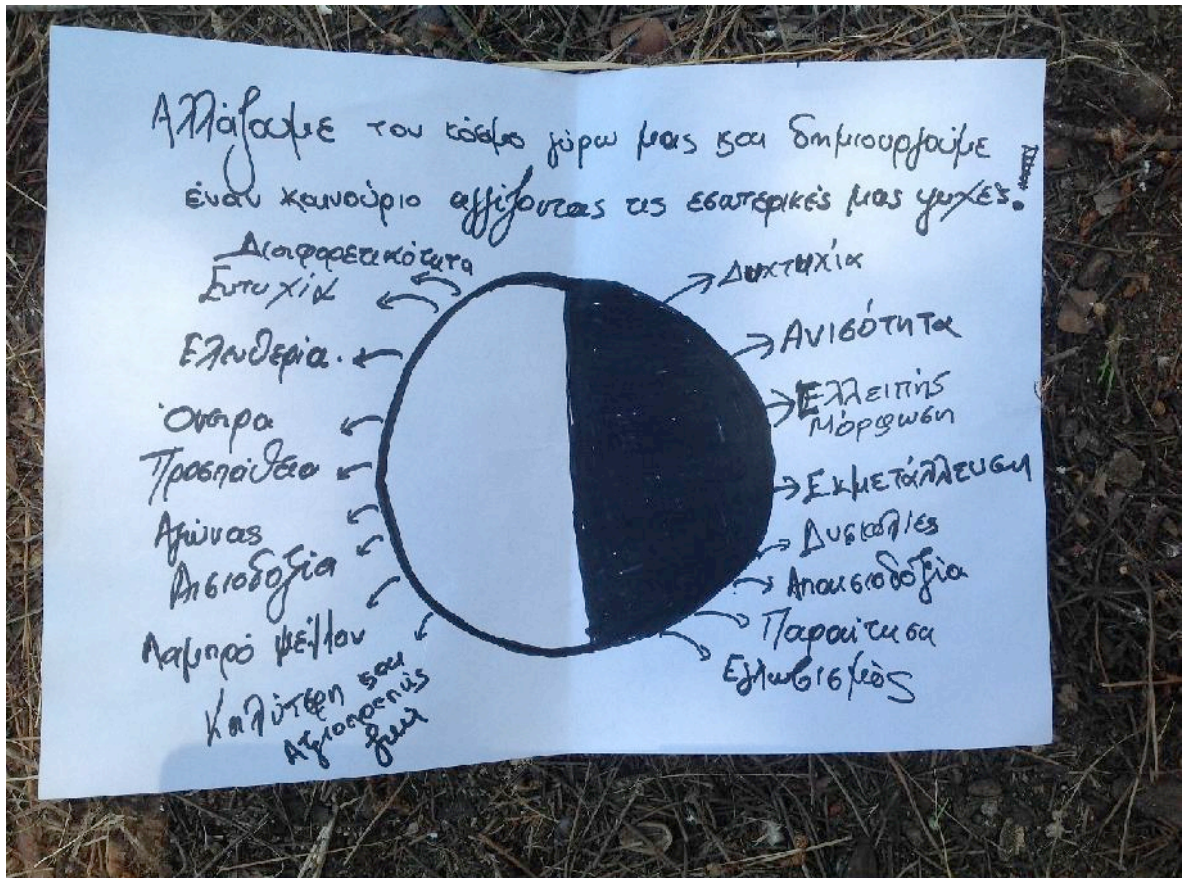 Αλλάζουμε τον κόσμο γύρω μας και δημιουργούμε
έναν καινούριο αγγίζοντας τις εσωτερικές μας ψυχές.
Διαφορετικότητα
Ευτυχία
Ελευθερία.
Όνειρα
Προσπάθεια
Αγώνας
Αισιοδοξία
Λαμπρό Μέλλον
Καλύτερη και
Αξιοπρεπής
ζωή
Δυχτυχία
Ανισότητα
Ελλειπής
Μόρφωση
Εκμετάλλευση
Δυσκολίες
Απαισιοδοξία
Παραίτηση
Εγλωβισμός